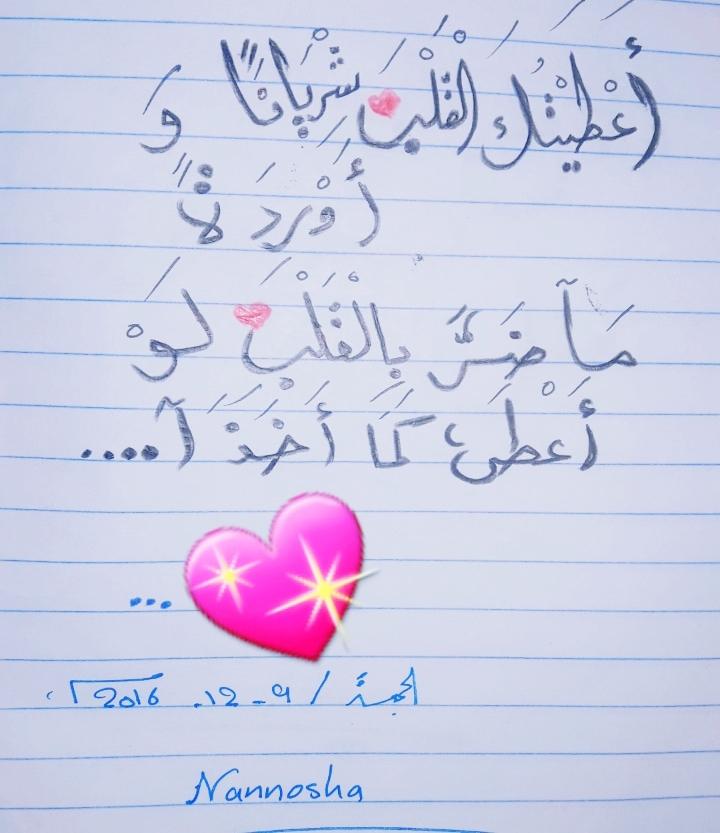 أَعْطَيْتُكَ القَلْبَ شَرْيَانًا وَ
أَوْرِدَةً
مَآ ضَرَّ بِالْقَلْبَ لَوْ
أَعْطَىٰ كَمَا أَخَذَ آ....
...
الجمعة / 9 - 12 - 2016
Nannosha